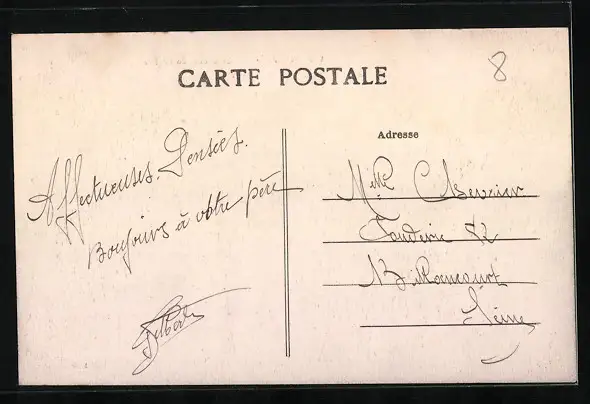 CARTE POSTALE
8
Affectueuses Pensées.
Bonjours à votre père
Adresse
Mlle
Fonderie 82
Seine